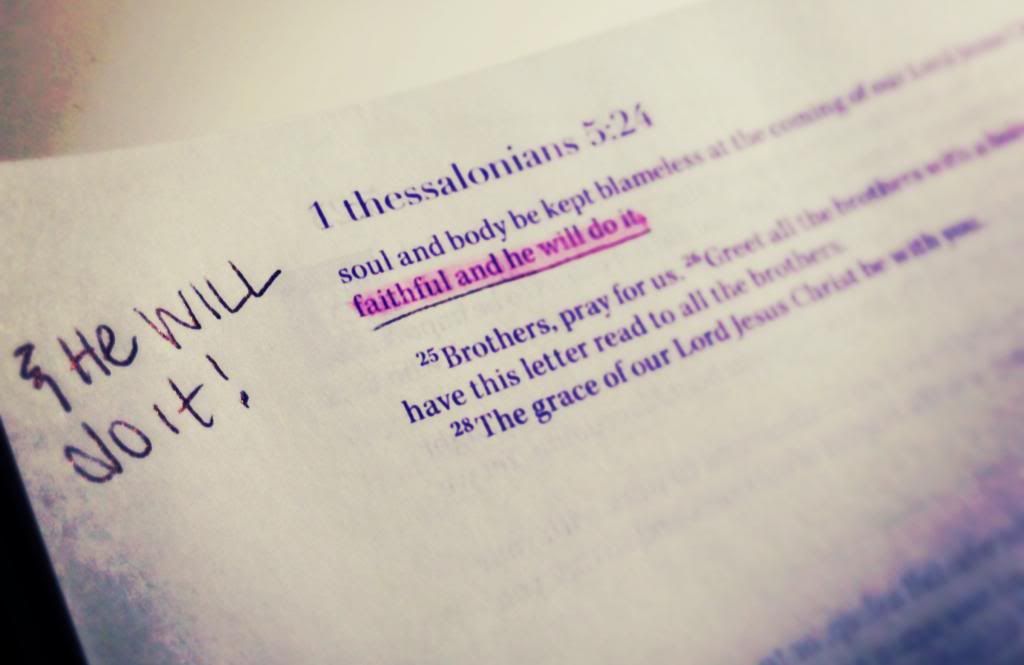 1 thessalonians 5:24
soul and body be kept blameless at the coming of our Lord Jesus
faithful and he will do it.
25 Brothers, pray for us. 26 Greet all the brothers with a
have this letter read to all the brothers.
28 The grace of our Lord Jesus Christ be with you.
& He WILL
do it!